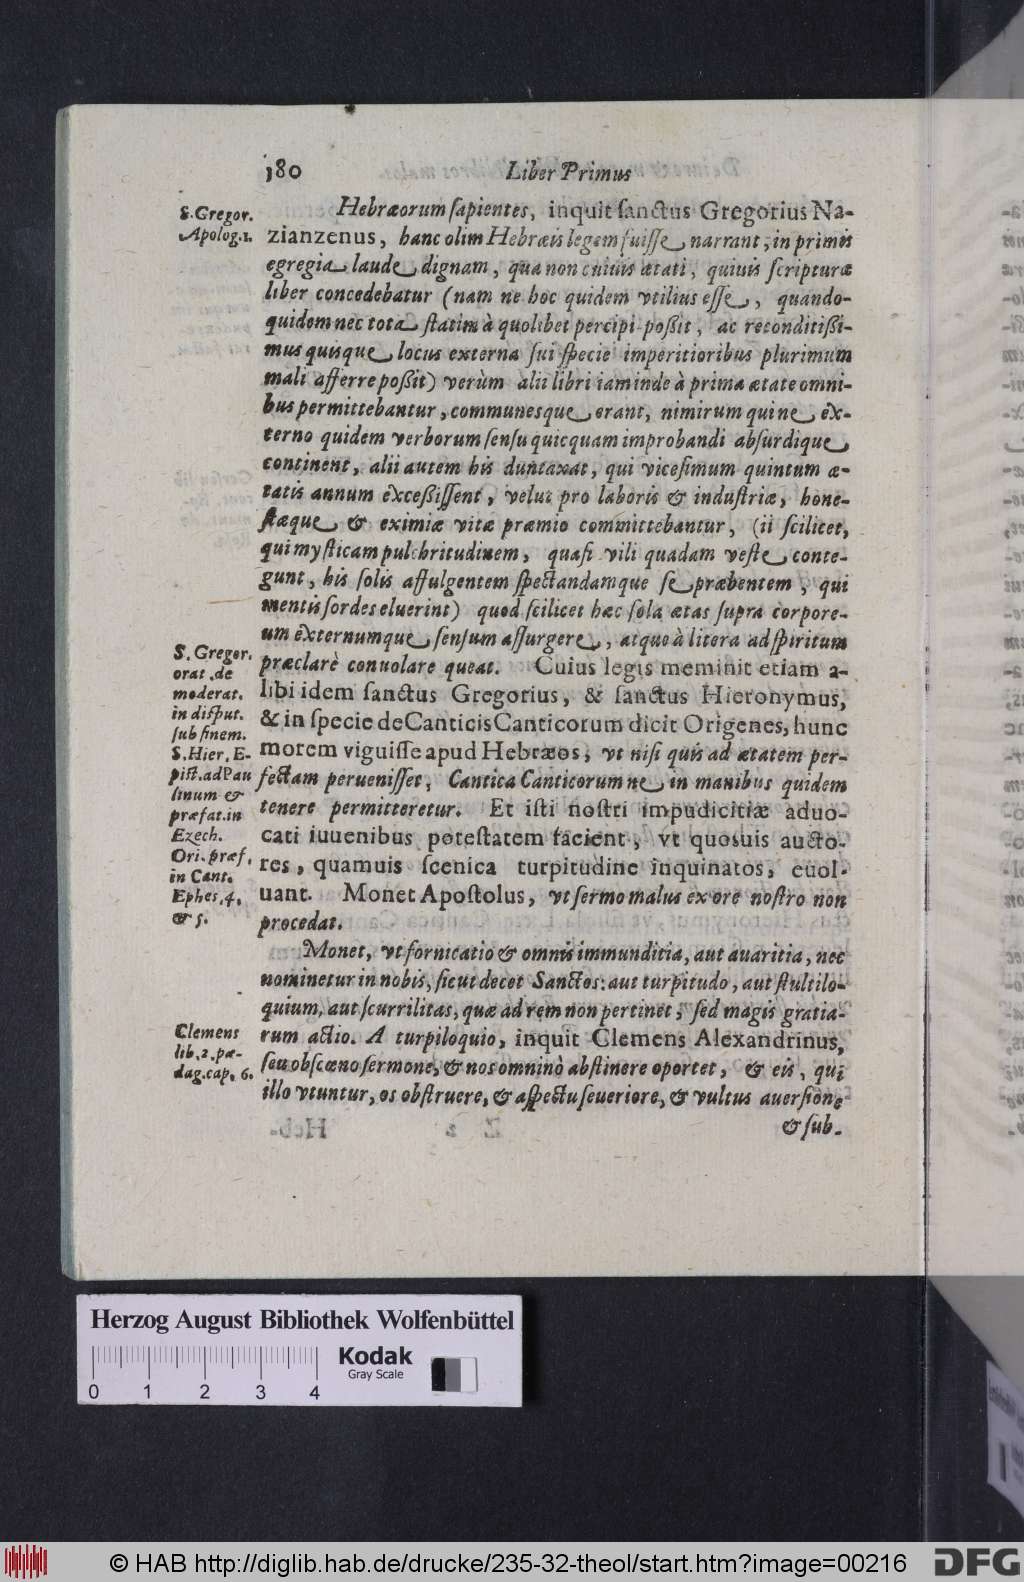 180 Liber Primus
S. Gregor.
Apolog. 1.
Hebræorum sapientes, inquit sanctus Gregorius Na-
zianzenus, hanc olim Hebræis legem fuisse narrant, in primis
egregia laude dignam, qua non cuiuis ætati, quiuis scripturæ
liber concedebatur (nam ne hoc quidem vtilius esse, quando-
quidem nec tota statim à quolibet percipi possit, ac reconditißi-
mus quisque locus externa sui specie imperitioribus plurimum
mali afferre possit) verùm alii libri iam inde à prima ætate omni-
bus permittebantur, communesque erant, nimirum qui ne ex-
terno quidem verborum sensu quicquam improbandi absurdique
continent, alii autem his duntaxat, qui vicesimum quintum æ-
tatis annum exceßissent, velut pro laboris & industriæ, hone-
stæque & eximiæ vitæ præmio committebantur, (ii scilicet,
qui mysticam pulchritudinem, quasi vili quadam veste conte-
gunt, his solis affulgentem spectandamque se præbentem, qui
mentis sordes eluerint) quod scilicet hæc sola ætas supra corpore-
um externumque sensum assurgere, atque à litera ad spiritum
præclarè conuolare queat. Cuius legis meminit etiam a-
libi idem sanctus Gregorius, & sanctus Hieronymus,
& in specie de Canticis Canticorum dicit Origenes, hunc
morem viguisse apud Hebræos, vt nisi quis ad ætatem per-
fectam peruenisset, Cantica Canticorum ne in manibus quidem
tenere permitteretur. Et isti nostri impudicitiæ aduo-
cati iuuenibus potestatem facient, vt quosuis aucto-
res, quamuis scenica turpitudine inquinatos, euol-
uant. Monet Apostolus, vt sermo malus ex ore nostro non
procedat.
S. Gregor.
orat. de
moderat.
in disput.
sub finem.
S. Hier. E-
pist. ad Pau
linum &
præfat. in
Ezech.
Ori. præf.
in Cant.
Ephes. 4.
& 5.
Monet, vt fornicatio & omnis immunditia, aut auaritia, nec
nominetur in nobis, sicut decet Sanctos: aut turpitudo, aut stultilo-
quium, aut scurrilitas, quæ ad rem non pertinet, sed magis gratia-
rum actio. A turpiloquio, inquit Clemens Alexandrinus,
seu obscœno sermone, & nos omninò abstinere oportet, & eis, qui
illo vtuntur, os obstruere, & aspectu seueriore, & vultus auersione
& sub-
Clemens
lib. 2. pæ-
dag. cap. 6.
Herzog August Bibliothek Wolfenbüttel
0 1 2 3 4
Kodak
Gray Scale
© HAB http://diglib.hab.de/drucke/235-32-theol/start.htm?image=00216
DFG